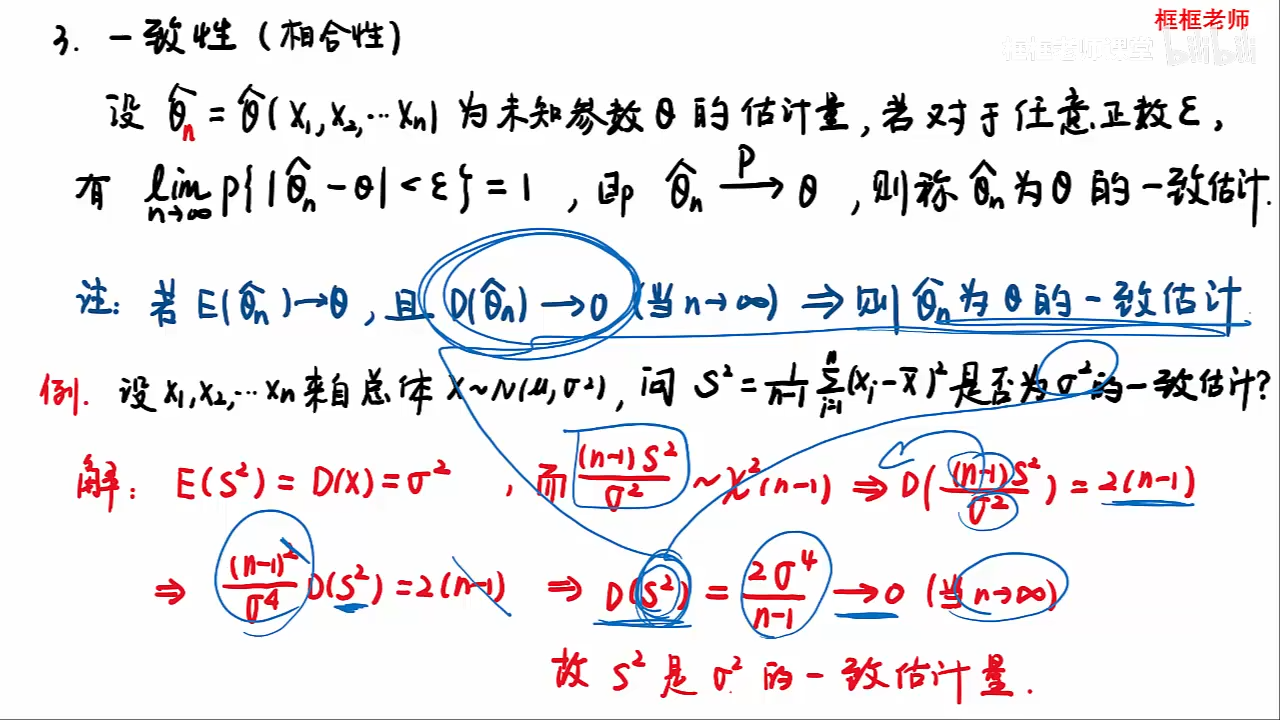 框框老师
框框老师课堂 bilibili
3. 一致性（相合性）
设 θ̂ₙ = θ̂(X₁,X₂,…Xₙ) 为未知参数 θ 的估计量，若对于任意正数 ε，
有 lim_{n→∞} P{|θ̂ₙ-θ|<ε}=1，即 θ̂ₙ —P→ θ，则称 θ̂ₙ 为 θ 的一致估计.
注：若 E(θ̂ₙ)→θ，且 D(θ̂ₙ)→0 (当 n→∞) ⇒ 则 θ̂ₙ 为 θ 的一致估计
例. 设 X₁,X₂,…Xₙ 来自总体 X~N(μ,σ²)，问 S² = 1/(n-1) ∑_{i=1}^{n}(Xᵢ-X̄)² 是否为 σ² 的一致估计?
解：E(S²)=D(X)=σ²，而 (n-1)S²/σ² ~ χ²(n-1) ⇒ D((n-1)S²/σ²) = 2(n-1)
⇒ (n-1)²/σ⁴ D(S²)=2(n-1) ⇒ D(S²) = 2σ⁴/(n-1) →0 (当 n→∞)
故 S² 是 σ² 的一致估计量.